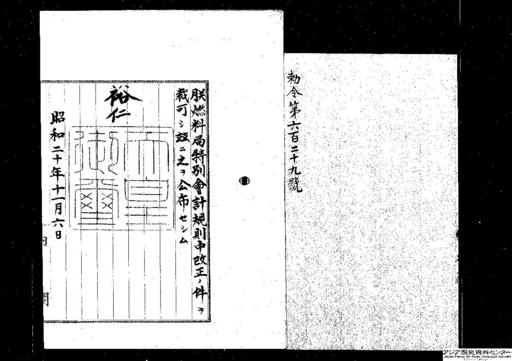 勅令第六百二十九號
朕燃料局特別會計規則中改正ノ件ヲ
裁可シ茲ニ之ヲ公布セシム
裕仁
天皇御璽
昭和二十年十一月六日
内閣
アジア歴史資料センター